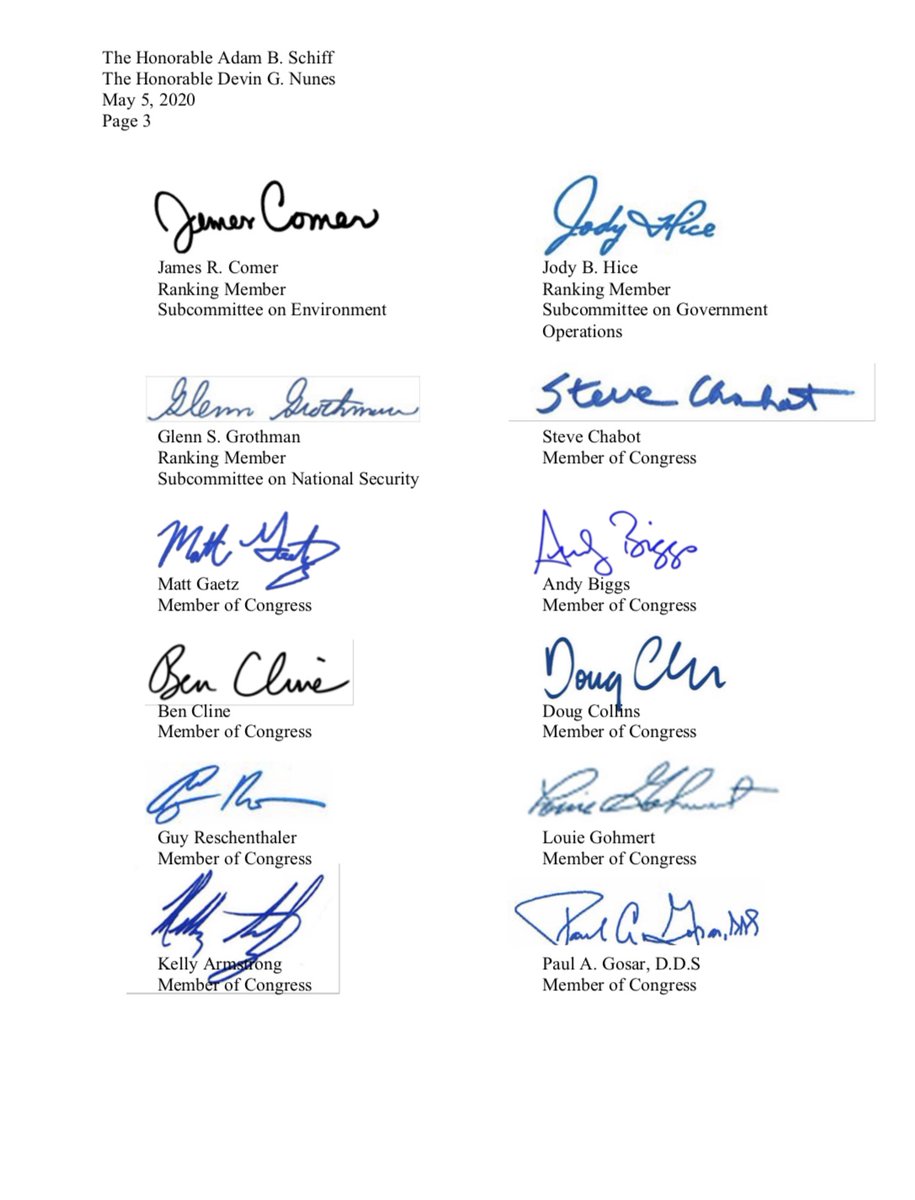 The Honorable Adam B. Schiff
The Honorable Devin G. Nunes
May 5, 2020
Page 3
James Comer
James R. Comer
Ranking Member
Subcommittee on Environment
Jody Hice
Jody B. Hice
Ranking Member
Subcommittee on Government
Operations
Glenn Grothman
Glenn S. Grothman
Ranking Member
Subcommittee on National Security
Steve Chabot
Steve Chabot
Member of Congress
Matt Gaetz
Matt Gaetz
Member of Congress
Andy Biggs
Andy Biggs
Member of Congress
Ben Cline
Ben Cline
Member of Congress
Doug
Doug Collins
Member of Congress
Guy Reschenthaler
Member of Congress
Louie Gohmert
Louie Gohmert
Member of Congress
Kelly
Kelly Armstrong
Member of Congress
Paul A. Gosar, DDS
Paul A. Gosar, D.D.S
Member of Congress